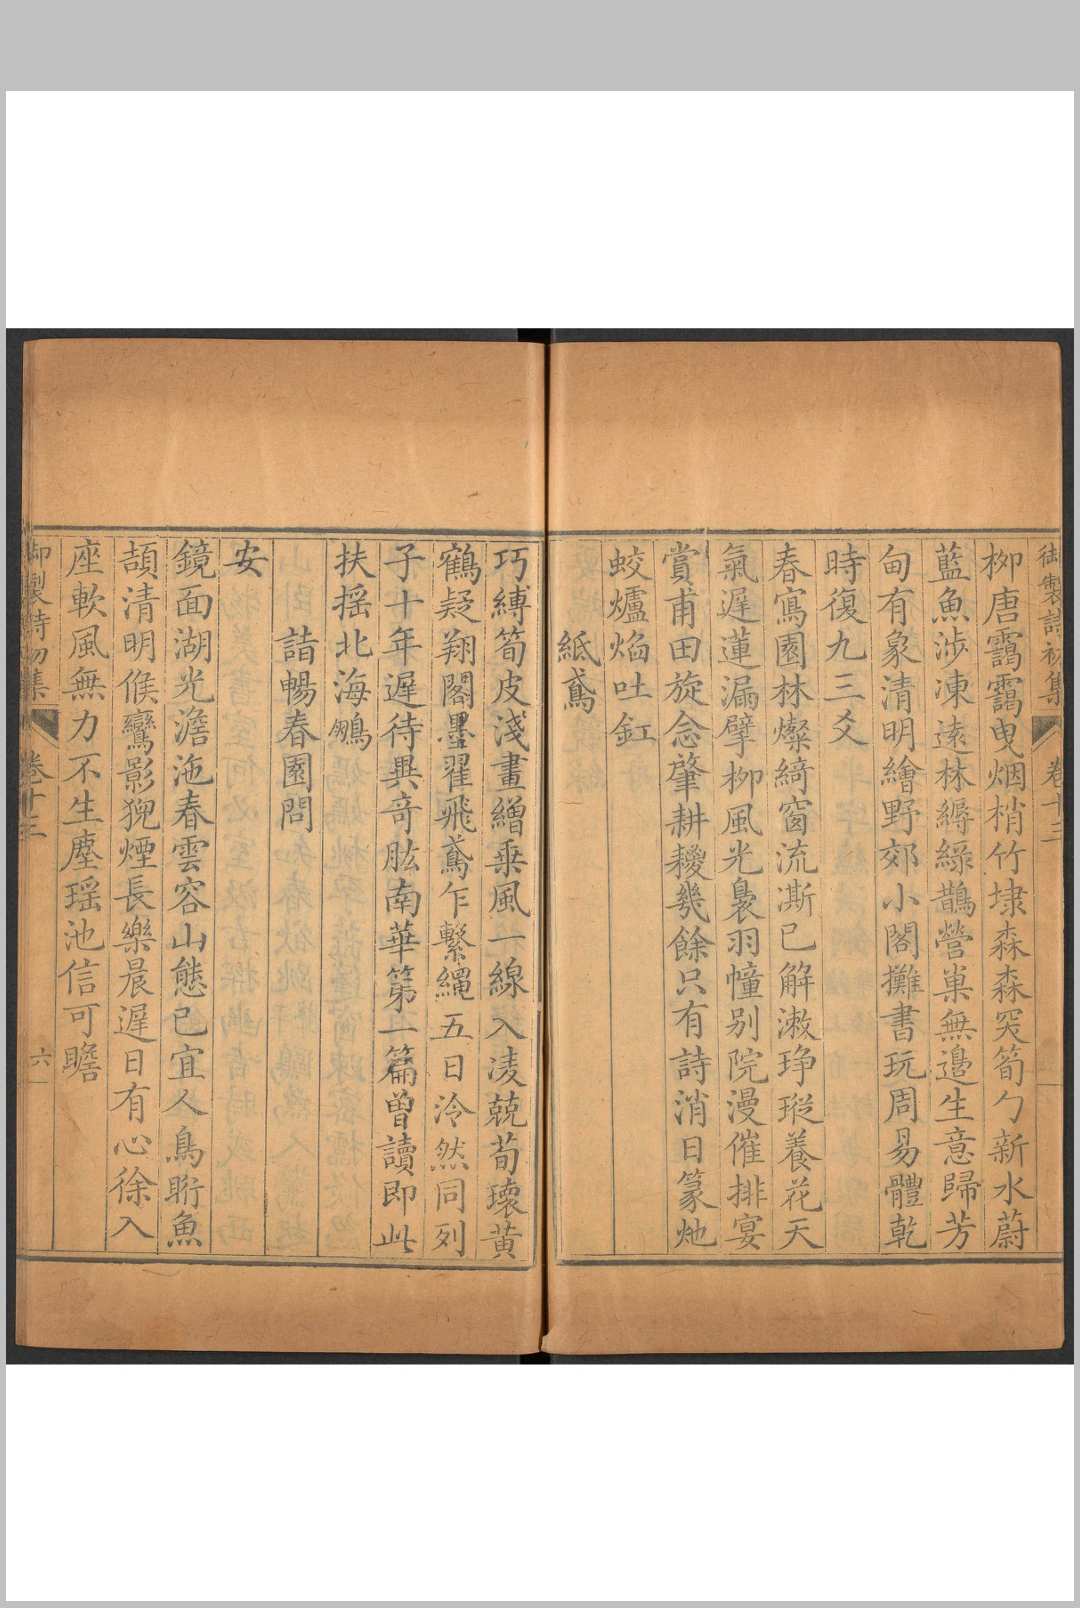 御製詩初集 卷十三
柳唐靄靄曳烟梢竹埭森森突筍勺新水蔚
藍魚涉凍遠林縟綠鵲營巢無邊生意歸芳
甸有象清明繪野郊小閣攤書玩周易體乾
時復九三爻
春寫園林燦綺窗流澌已解漱琤瑽養花天
氣遲蓮漏擘柳風光裊羽幢別院漫催排宴
賞甫田旋念肇耕耰幾餘只有詩消日篆灺
蛟爐焰吐釭
紙鳶
巧縛筍皮淺畫繒乘風一線入凌兢荀瓌黃
鶴疑翔閣墨翟飛鳶乍繫繩五日泠然同列
子十年遲待異奇肱南華第一篇曾讀即此
扶搖北海鵬
詣暢春園問
安
鏡面湖光澹沲春雲容山態已宜人鳥䀪魚
頡清明候鸞影猊煙長樂晨遲日有心徐入
座軟風無力不生塵瑶池信可瞻
御製詩初集 卷十三 六